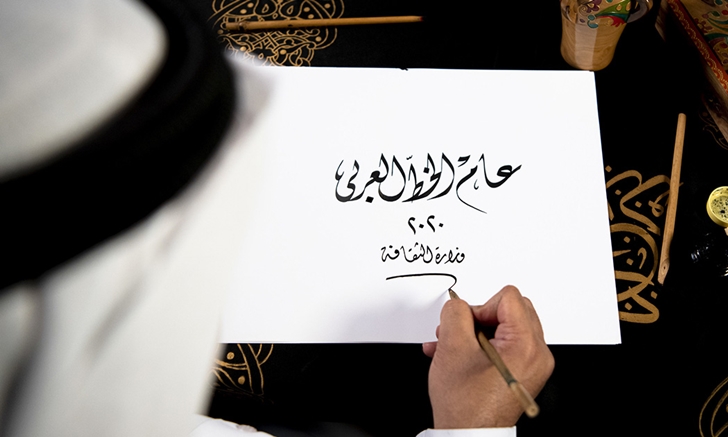 عام الخط العربي
٢٠٢٠
وزارة الثقافة